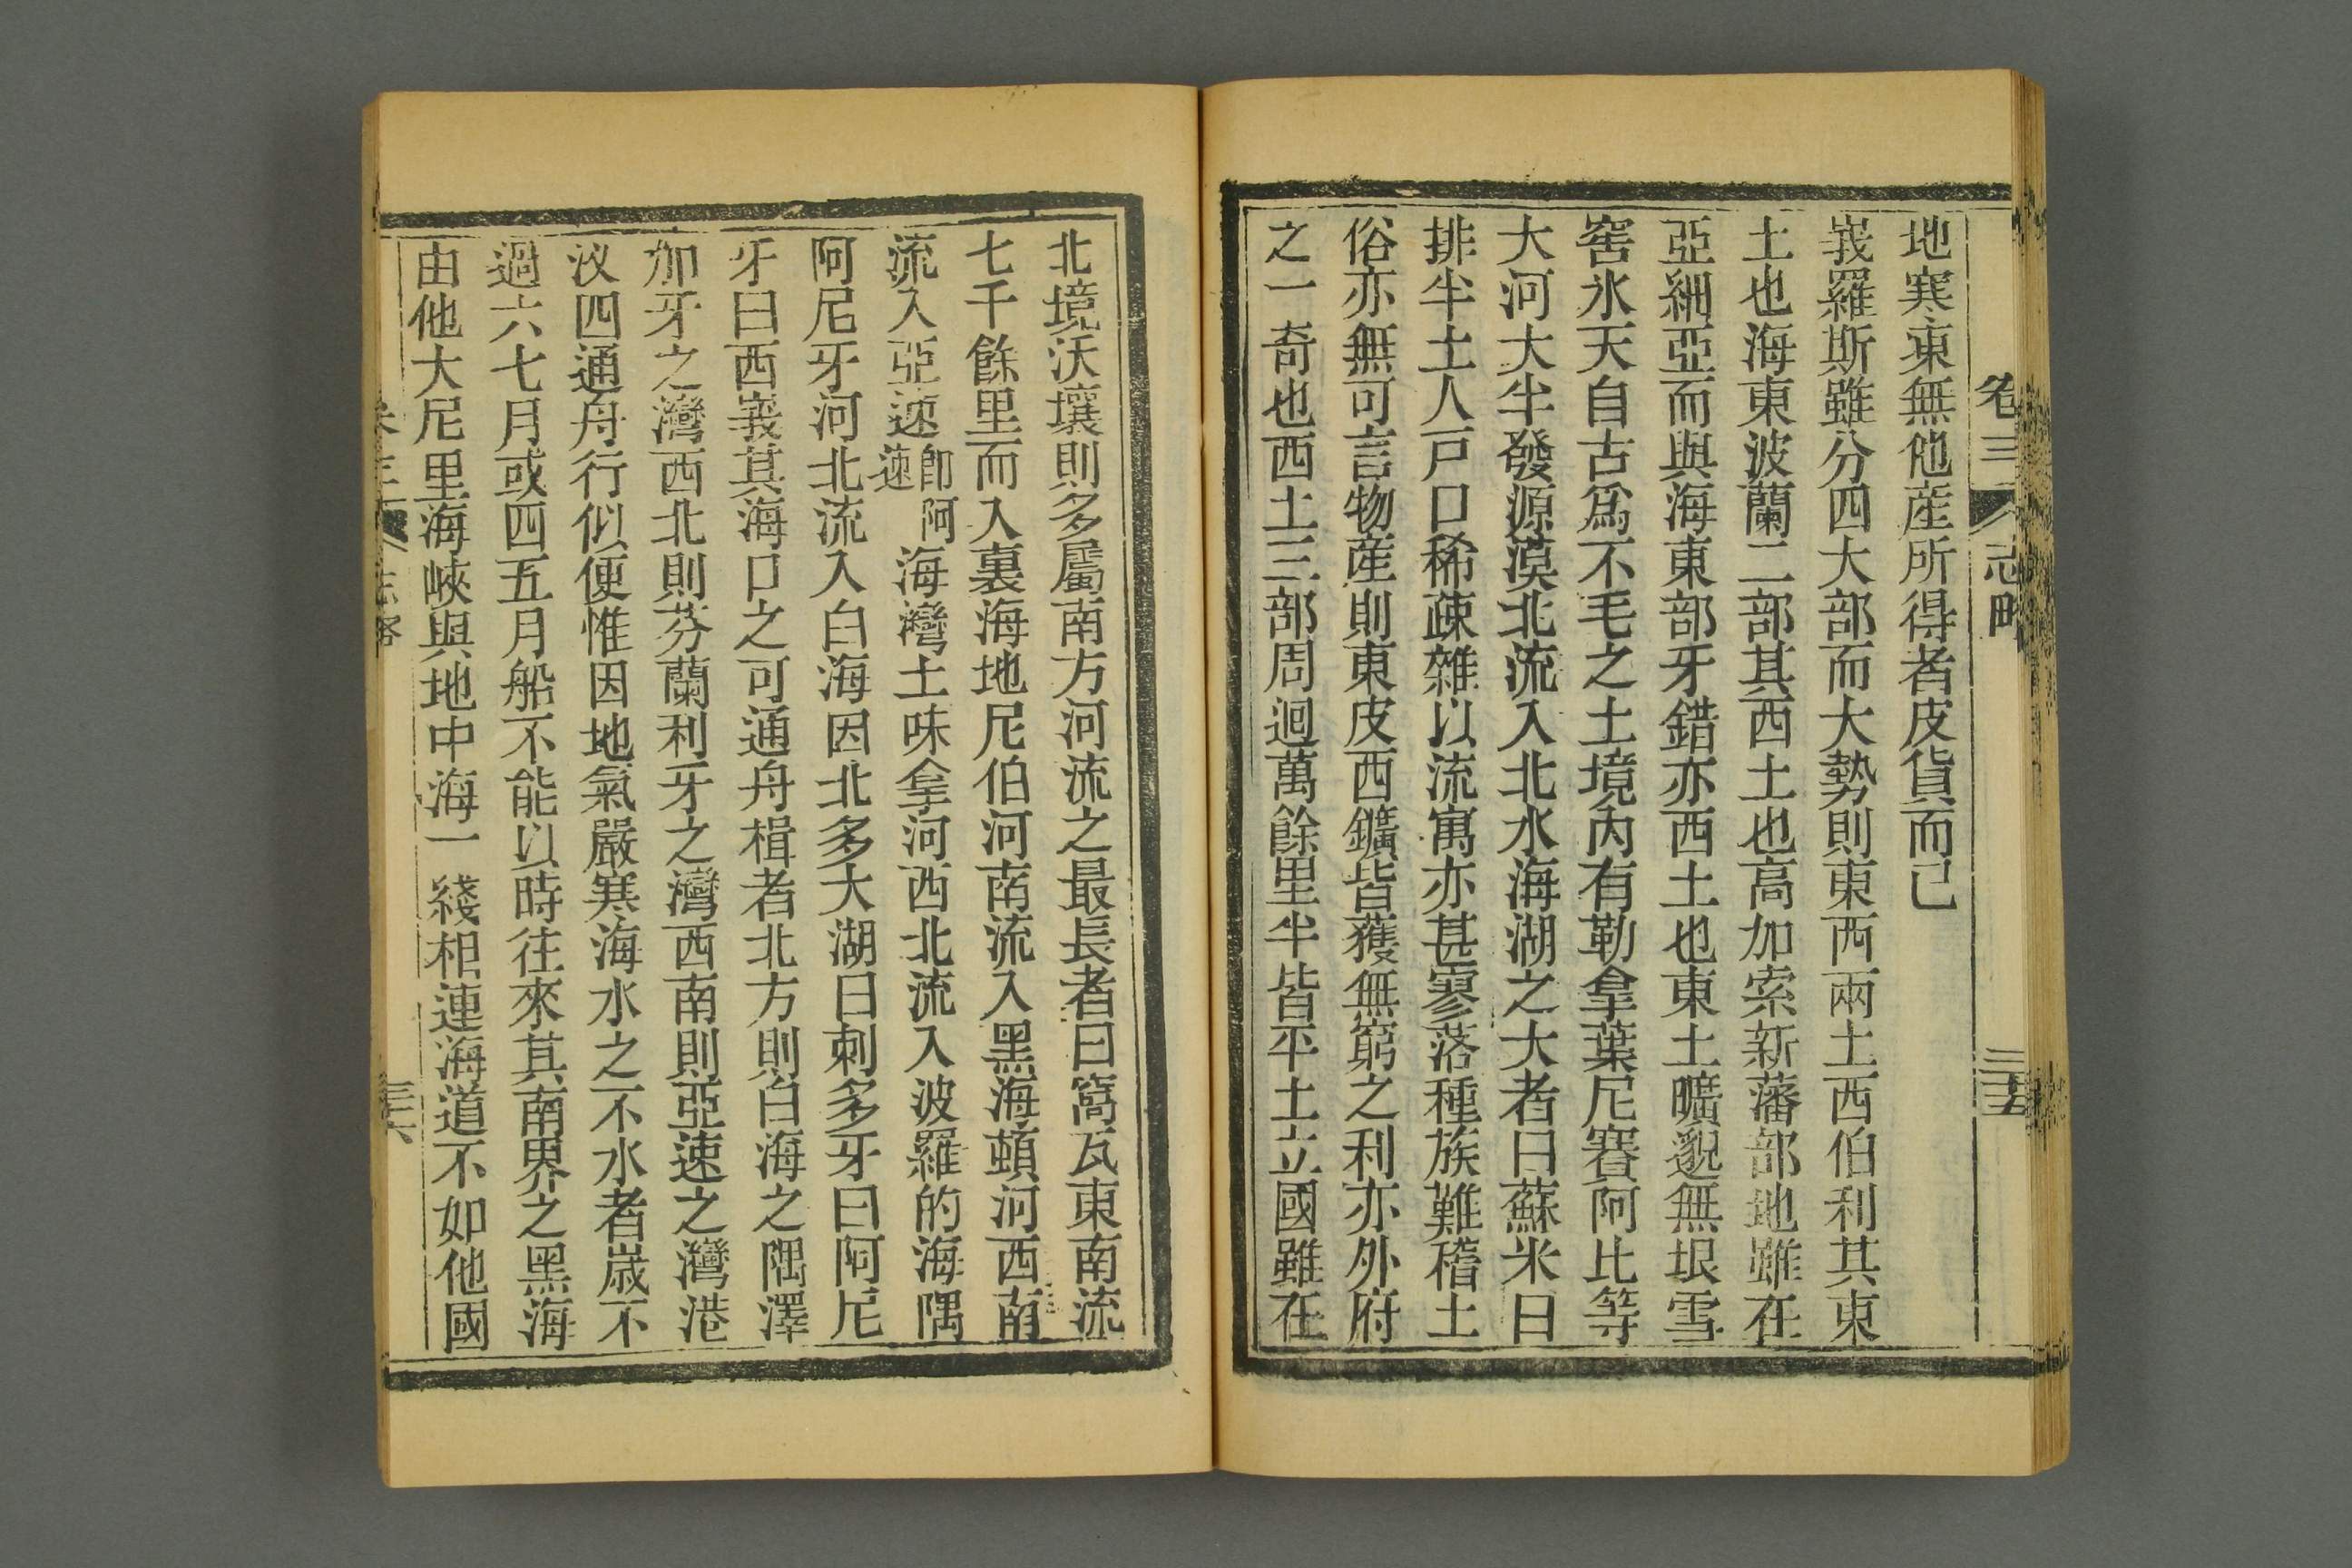 卷三 志略 三十五
地寒凍無他産所得者皮貨而已
峩羅斯雖分四大部而大勢則東西兩土西伯利其東
土也海東波蘭二部其西土也高加索新藩部地雖在
亞細亞而與海東部牙錯亦西土也東土曠邈無垠雪
窖氷天自古爲不毛之土境內有勒拿葉尼賽阿比等
大河大半發源漠北流入北水海湖之大者曰蘇米曰
排半土人戸口稀疎雜以流寓亦甚寥落種族難稽土
俗亦無可言物産則東皮西鑛皆獲無窮之利亦外府
之一奇也西土三部周迴萬餘里半皆平土立國雖在
北境沃壤則多屬南方河流之最長者曰窩瓦東南流
七千餘里而入裏海地尼伯河南流入黑海頓河西南
流入亞速卽阿速海灣土味拿河西北流入波羅的海隅
阿尼牙河北流入白海因北多大湖曰刺多牙曰阿尼
牙曰西峩其海口之可通舟楫者北方則白海之隅澤
加牙之灣西北則芬蘭利牙之灣西南則亞速之灣港
汊四通舟行似便惟因地氣嚴寒海水之不水者歲不
過六七月或四五月船不能以時往來其南界之黑海
由他大尼里海峽與地中海一綫相連海道不如他國
志畧 三十六